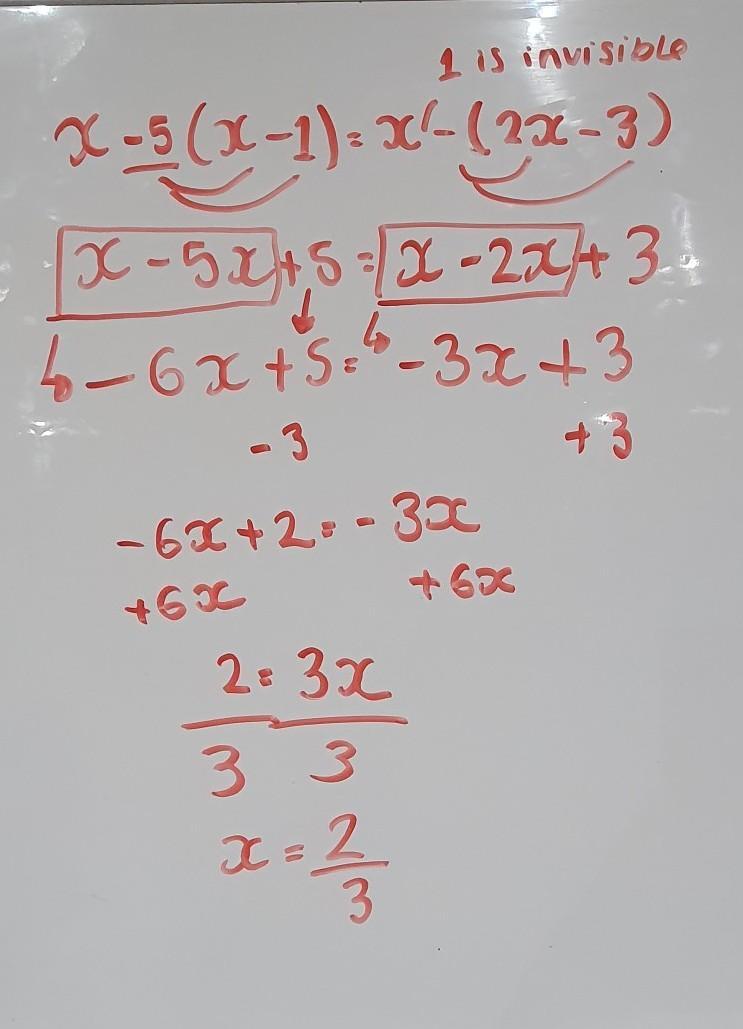 1 is invisible
x - 5(x - 1) = x - (2x - 3)
x - 5x + 5 = x - 2x + 3
- 6x + 5 = - 3x + 3
- 3 + 3
- 6x + 2 = - 3x
+ 6x + 6x
2 = 3x
3 3
x = 2/3